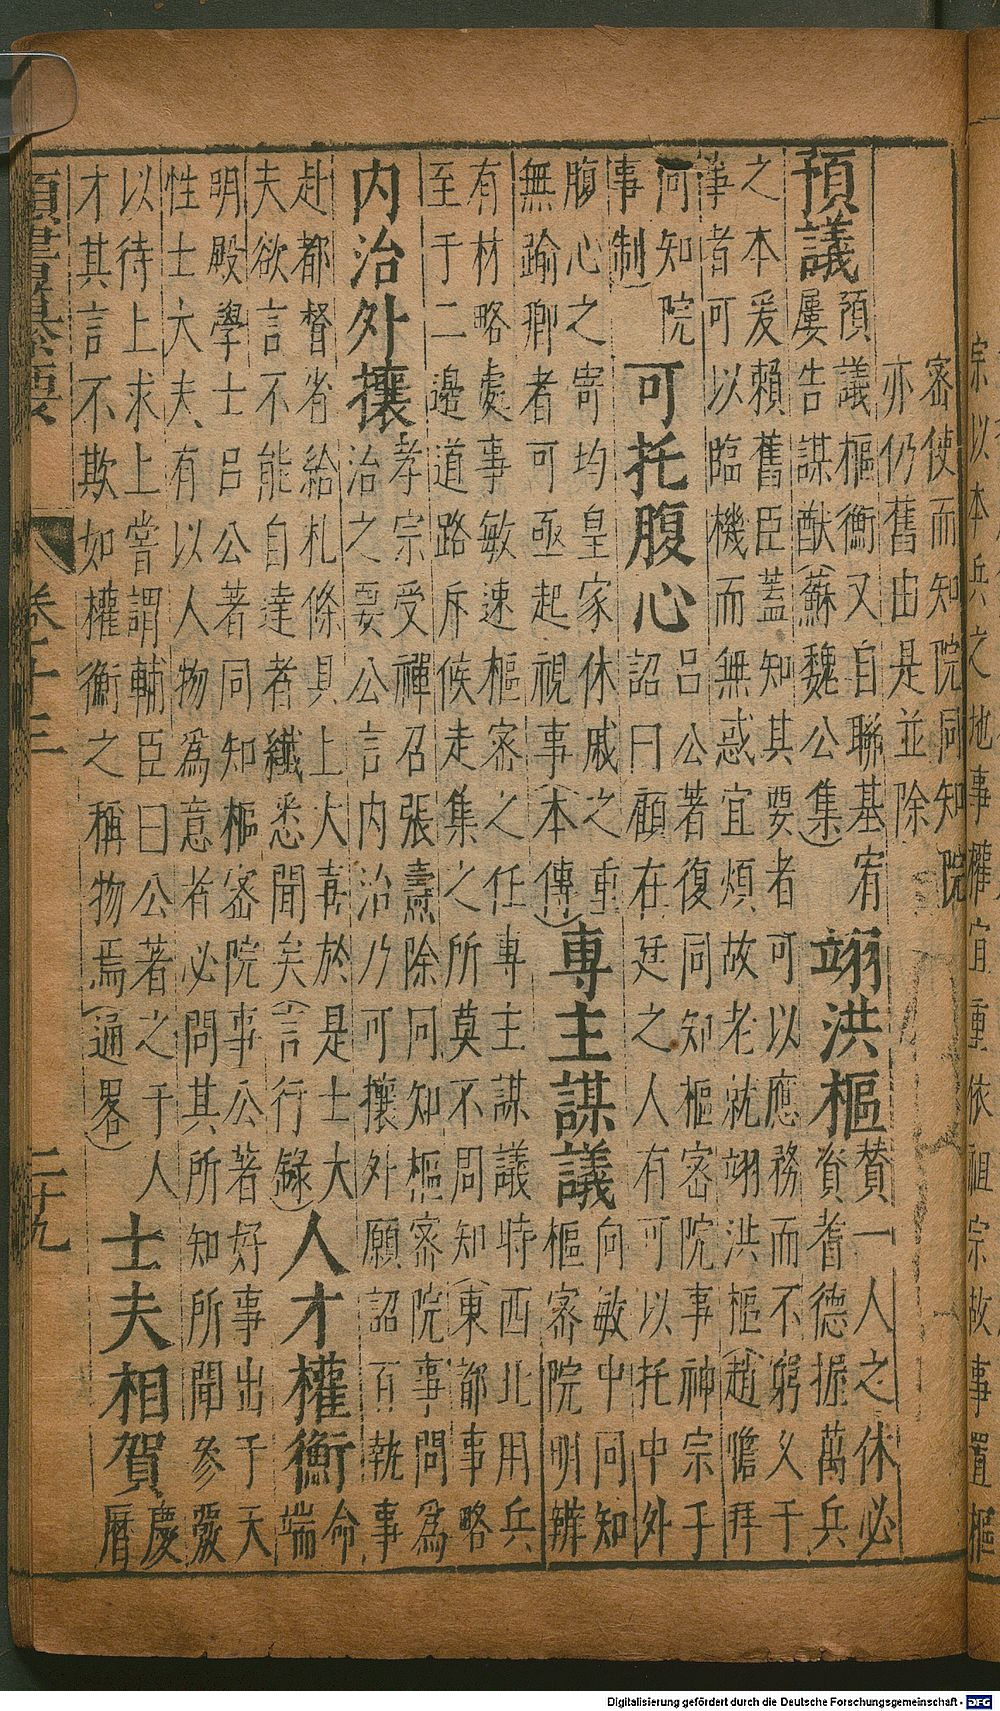 宗以本兵之地事權宜重依祖宗故事置樞
密使而知院同知院
亦仍舊由是並除
預議
預議樞衡又自聯基宥
屢告謀猷(蘇魏公集)
翊洪樞
贊一人之休必
資耆德握萬兵
之本爰賴舊臣蓋知其要者可以應務而不窮久于
事者可以臨機而無惑宜煩故老就翊洪樞(趙瞻拜
同知院
事制)
可托腹心
呂公著復同知樞密院事神宗手
詔曰顧在廷之人有可以托中外
腹心之寄均皇家休戚之重
無踰卿者可亟起視事(本傳)
專主謀議
向敏中同知
樞密院明辨
有材略處事敏速樞密之任專主謀議時西北用兵
至于二邊道路斥候走集之所莫不問知(東都事略
內治外攘
孝宗受禪召張燾除同知樞密院事問為
治之要公言內治乃可攘外願詔百執事
赴都督省給札條具上大喜於是士大
夫欲言不能自達者纖悉聞矣(言行錄)
人才權衡
命
端
明殿學士呂公著同知樞密院事公著好事出于天
性士大夫有以人物為意者必問其所知所聞參嚴
以待上求上嘗謂輔臣曰公著之于人
才其言不欺如權衡之稱物焉(通畧)
士夫相賀
慶
曆
類書纂要 卷十三 二十九
Digitalisierung gefördert durch die Deutsche Forschungsgemeinschaft - DFG